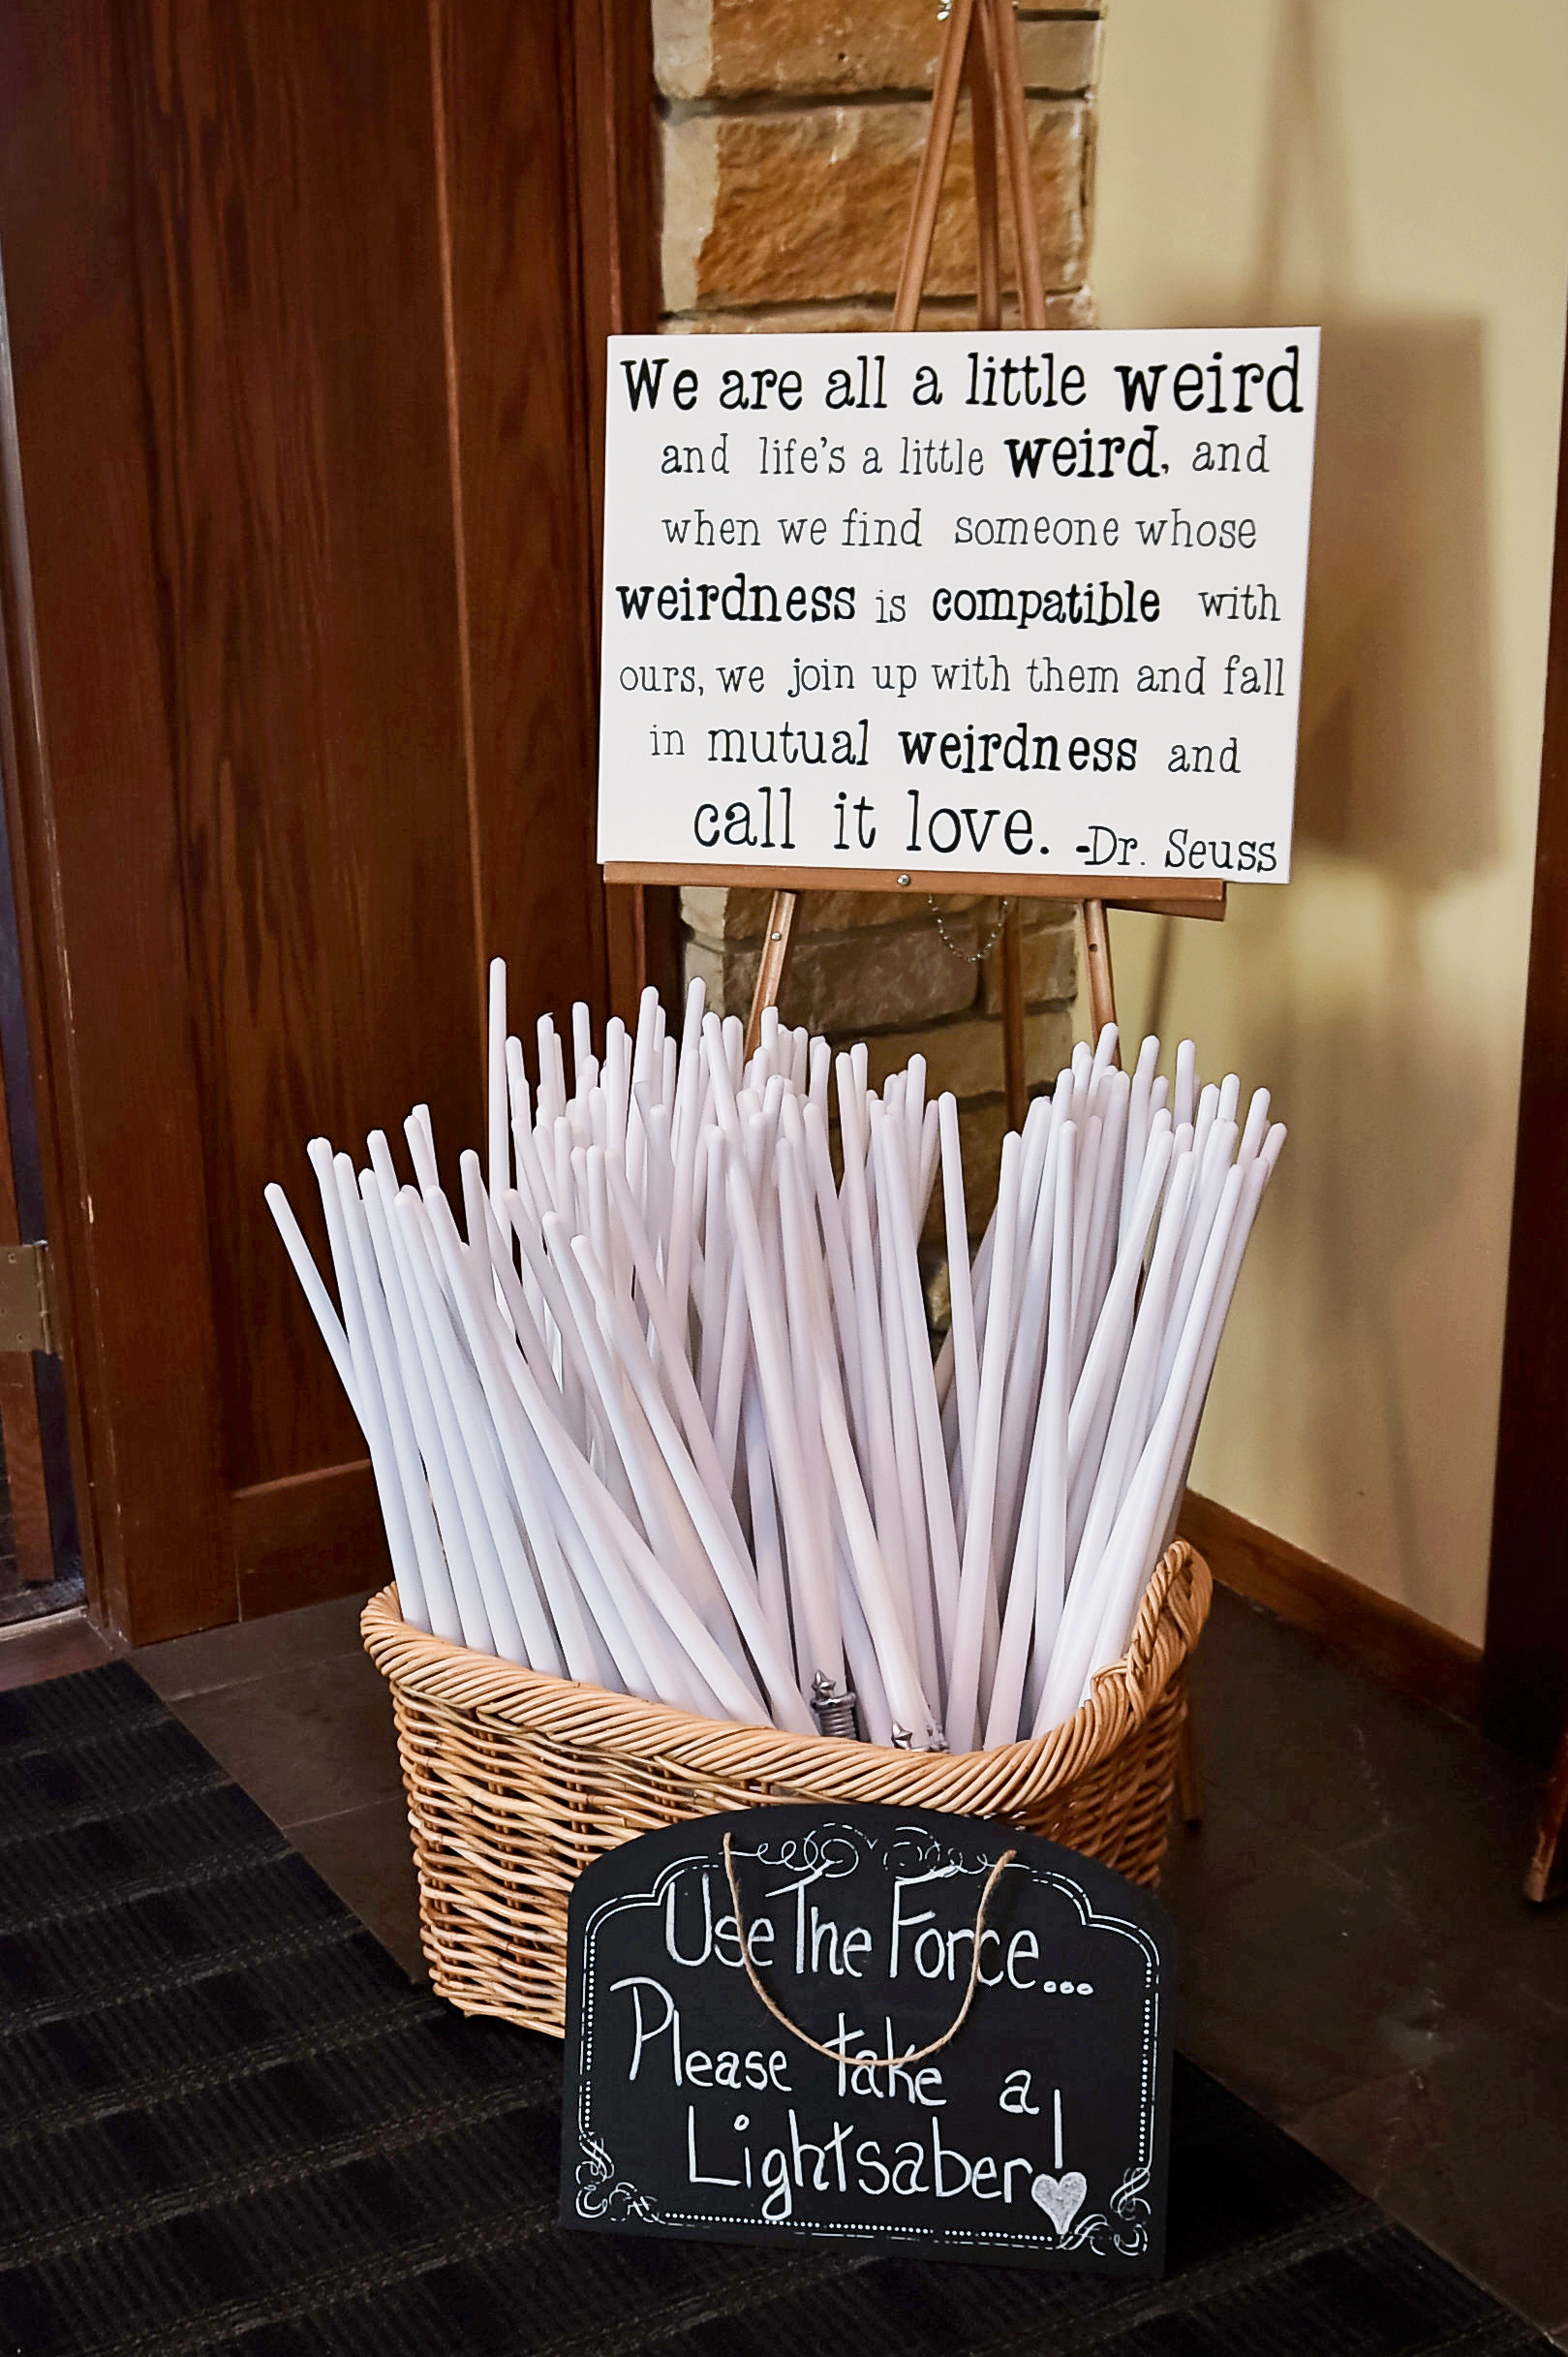 We are all a little weird
and life's a little weird, and
when we find someone whose
weirdness is compatible with
ours, we join up with them and fall
in mutual weirdness and
call it love. -Dr. Seuss
Use The Force...
Please take a
Lightsaber!